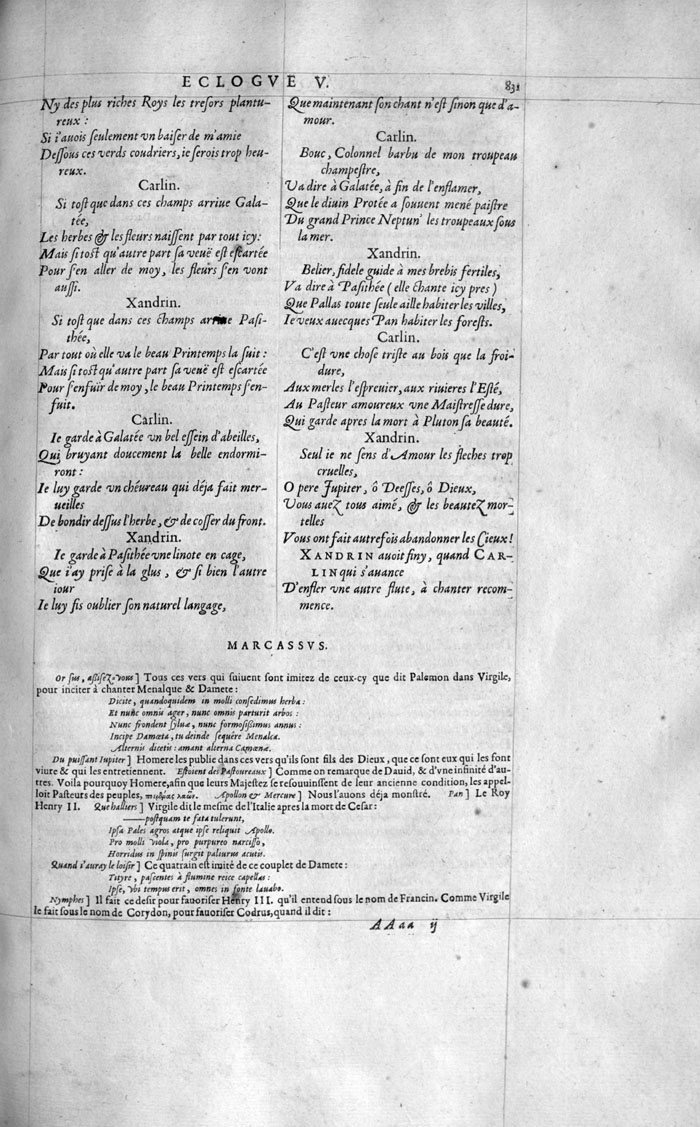 ECLOGVE V.
831
Ny des plus riches Roys les tresors plantu-
reux :
Si i'auois ſeulement vn baiser de m'amie
Deſſous ces verds coudriers, ie ſerois trop heu-
reux.
Carlin.
Si toſt que dans ces champs arriue Gala-
tée,
Les herbes & les fleurs naiſſent par tout icy:
Mais ſi toſt qu'autre part ſa veuë eſt eſcartée
Pour ſ'en aller de moy, les fleurs ſ'en vont
auſſi.
Xandrin.
Si toſt que dans ces champs arriue Paſi-
thée,
Par tout où elle va le beau Printemps la ſuit:
Mais ſi toſt qu'autre part ſa veuë eſt eſcartée
Pour ſ'enfuir de moy, le beau Printemps ſ'en-
fuit.
Carlin.
Ie garde à Galatée vn bel eſſein d'abeilles,
Qui bruyant doucement la belle endormi-
ront :
Ie luy garde vn chéureau qui déja fait mer-
ueilles
De bondir deſſus l'herbe, & de coſſer du front.
Xandrin.
Ie garde à Paſithée vne linote en cage,
Que i'ay priſe à la glus, & ſi bien l'autre
iour
Ie luy fis oublier ſon naturel langage,
Que maintenant ſon chant n'eſt ſinon que d'a-
mour.
Carlin.
Bouc, Colonnel barbu de mon troupeau
champeſtre,
Va dire à Galatée, à fin de l'enflamer,
Que le diuin Protée a ſouuent mené paiſtre
Du grand Prince Neptun' les troupeaux ſous
la mer.
Xandrin.
Belier, fidele guide à mes brebis fertiles,
Va dire à Paſithée (elle chante icy pres)
Que Pallas toute ſeule aille habiter les villes,
Ie veux auecques Pan habiter les foreſts.
Carlin.
C'eſt vne choſe triſte au bois que la froi-
dure,
Aux merles l'eſpreuier, aux riuieres l'Eſté,
Au Paſteur amoureux vne Maiſtreſſe dure,
Qui garde apres la mort à Pluton ſa beauté.
Xandrin.
Seul ie ne ſens d'Amour les fleches trop
cruelles,
O pere Jupiter, ô Deeſſes, ô Dieux,
Vous auez tous aimé, & les beautez mor-
telles
Vous ont fait autrefois abandonner les Cieux!
XANDRIN auoit finy, quand CAR-
LIN qui ſ'auance
D'enfler vne autre flute, à chanter recom-
mence.
MARCASSVS.
Or ſus, aſſiſez-vous] Tous ces vers qui ſuiuent ſont imitez de ceux-cy que dit Palemon dans Virgile,
pour inciter à chanter Menalque & Damete :
Dicite, quandoquidem in molli conſedimus herba :
Et nunc omnis ager, nunc omnis parturit arbos :
Nunc frondent ſyluæ, nunc formoſiſsimus annus :
Incipe Damœta, tu deinde ſequére Menalca.
Alternis dicetis : amant alterna Camœnæ.
Du puiſſant Iupiter] Homere les publie dans ces vers qu'ils ſont fils des Dieux, que ce ſont eux qui les font
viure & qui les entretiennent. Eſtoient des Paſtoureaux] Comme on remarque de Dauid, & d'vne infinité d'au-
tres. Voila pourquoy Homere, afin que leurs Majeſtez ſe reſouuinſſent de leur ancienne condition, les appel-
loit Paſteurs des peuples, Apollon & Mercure] Nous l'auons déja monſtré. Pan] Le Roy
Henry II. Que halliers] Virgile dit le meſme de l'Italie apres la mort de Ceſar :
——poſtquam te fata tulerunt,
Ipſa Pales agros atque ipſe reliquit Apollo.
Pro molli viola, pro purpureo narciſſo,
Horridus in ſpinis ſurgit paliurus acutis.
Quand i'auray le loiſir] Ce quatrain eſt imité de ce couplet de Damete :
Tityre, paſcentes à flumine reice capellas :
Ipſe, vbi tempus erit, omnes in fonte lauabo.
Nymphes] Il fait ce deſir pour fauoriſer Henry III. qu'il entend ſous le nom de Francin. Comme Virgile
le fait ſous le nom de Corydon, pour fauoriſer Codrus, quand il dit :
AAaa ij